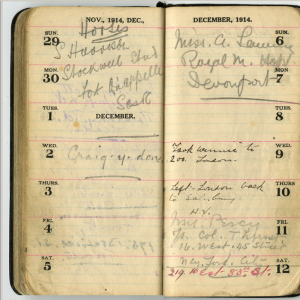 NOV., 1914, DEC.,
SUN. 29
Horses
S Harrison
MON. 30
Stockwell Stud
Fort Qu'appelle
Sask
TUES. 1
DECEMBER.
WED. 2
Craig-y-don
THURS. 3
FRI. 4
SAT. 5
DECEMBER, 1914.
SUN. 6
Miss. A.
Royal M. Hspt
MON. 7
Devonport
TUES. 8
WED. 9
Took Winnie to
Zoo. London
THURS. 10
Left London back
to
N.Y.
FRI. 11
Percy
Col. T.
16. West. 45 Street
New York City
SAT. 12
219. West 83rd St.